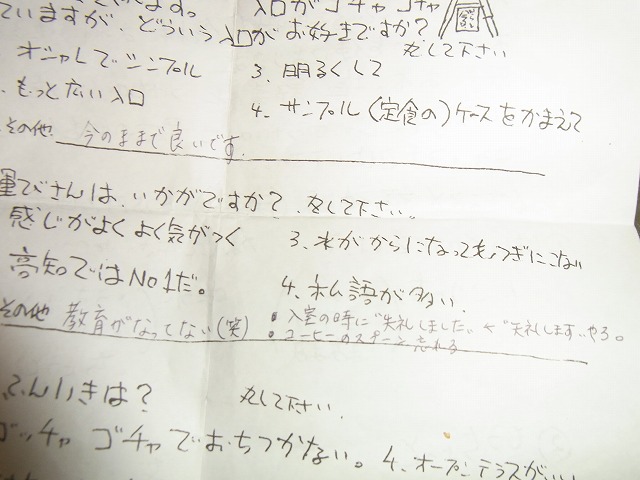 入口がゴチャゴチャ
ていますが、どういう入口がお好きですか?
丸して下さい
オシャレでシンプル
3. 明るくして
、もっと広い入口
4. サンプル(定食の)ケースをかまえて
その他 今のままで良いです。
運びさんは、いかがですか? 丸して下さい。
感じがよくよく気がつく
3. 水がからになってもつぎにこない
高知ではNo1だ。
4. 私語が多い
その他 教育がなってない(笑)
・入室の時に"失礼しました"や"失礼します"やろ。
・コーヒーのスプーン忘れる
ふんいきは? 丸して下さい、
ゴッチャゴチャでおちつかない。
4. オープンテラスがいい